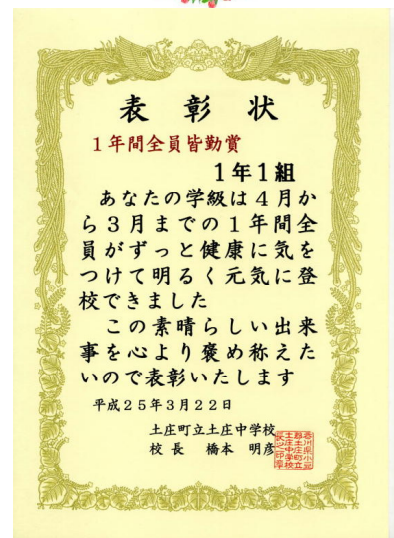 表彰状
１年間全員皆勤賞
１年１組
あなたの学級は４月か
ら３月までの１年間全
員がずっと健康に気を
つけて明るく元気に登
校できました
この素晴らしい出来
事を心より褒め称えた
いので表彰いたします
平成２５年３月２２日
土庄町立土庄中学校
校長 橋本 明彦